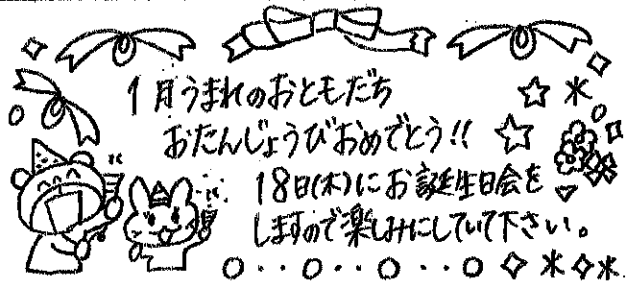 1月うまれのおともだち
おたんじょうびおめでとう!!
18日(木)にお誕生日会を
しますので楽しみにしていて下さい。